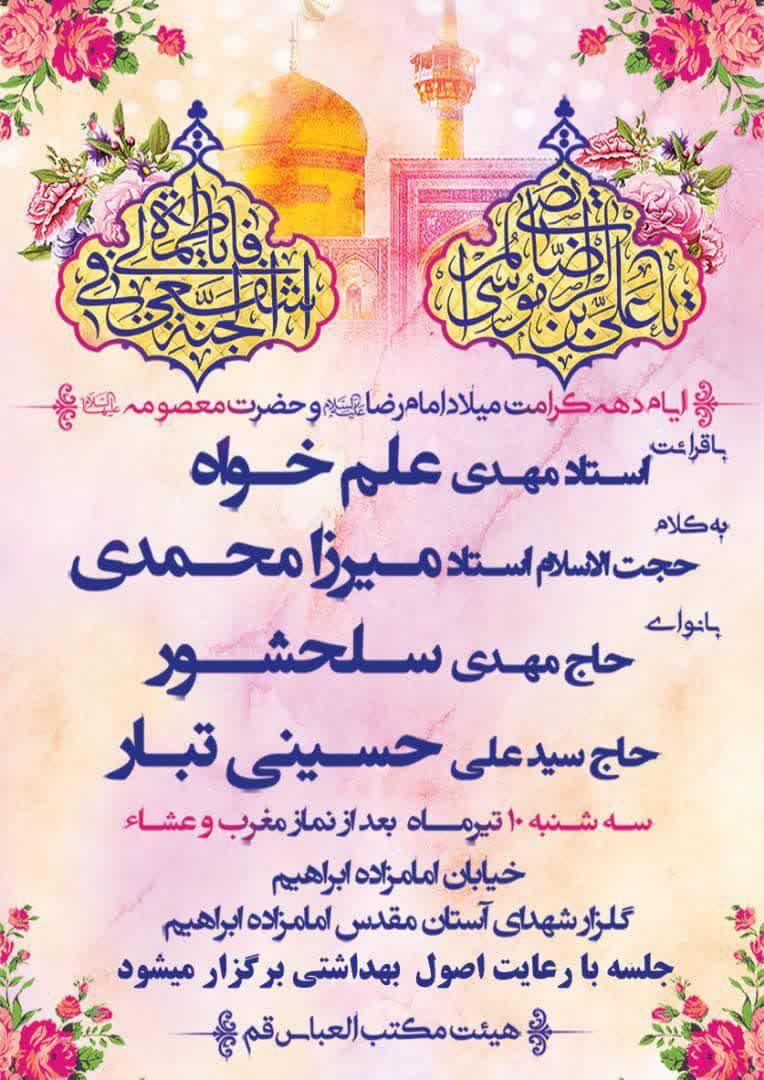 یا علی بن موسی الرضا المرتضی
یا فاطمة اشفعی لی فی الجنة
ایام دهه کرامت میلاد امام رضا علیه السلام و حضرت معصومه
با قرائت
استاد مهدی علم خواه
به کلام
حجت الاسلام استاد میرزا محمدی
با نوای
حاج مهدی سلحشور
حاج سید علی حسینی تبار
سه شنبه ۱۰ تیرماه بعد از نماز مغرب و عشاء
خیابان امامزاده ابراهیم
گلزار شهدای آستان مقدس امامزاده ابراهیم
جلسه با رعایت اصول بهداشتی برگزار میشود
هیئت مکتب العباس قم